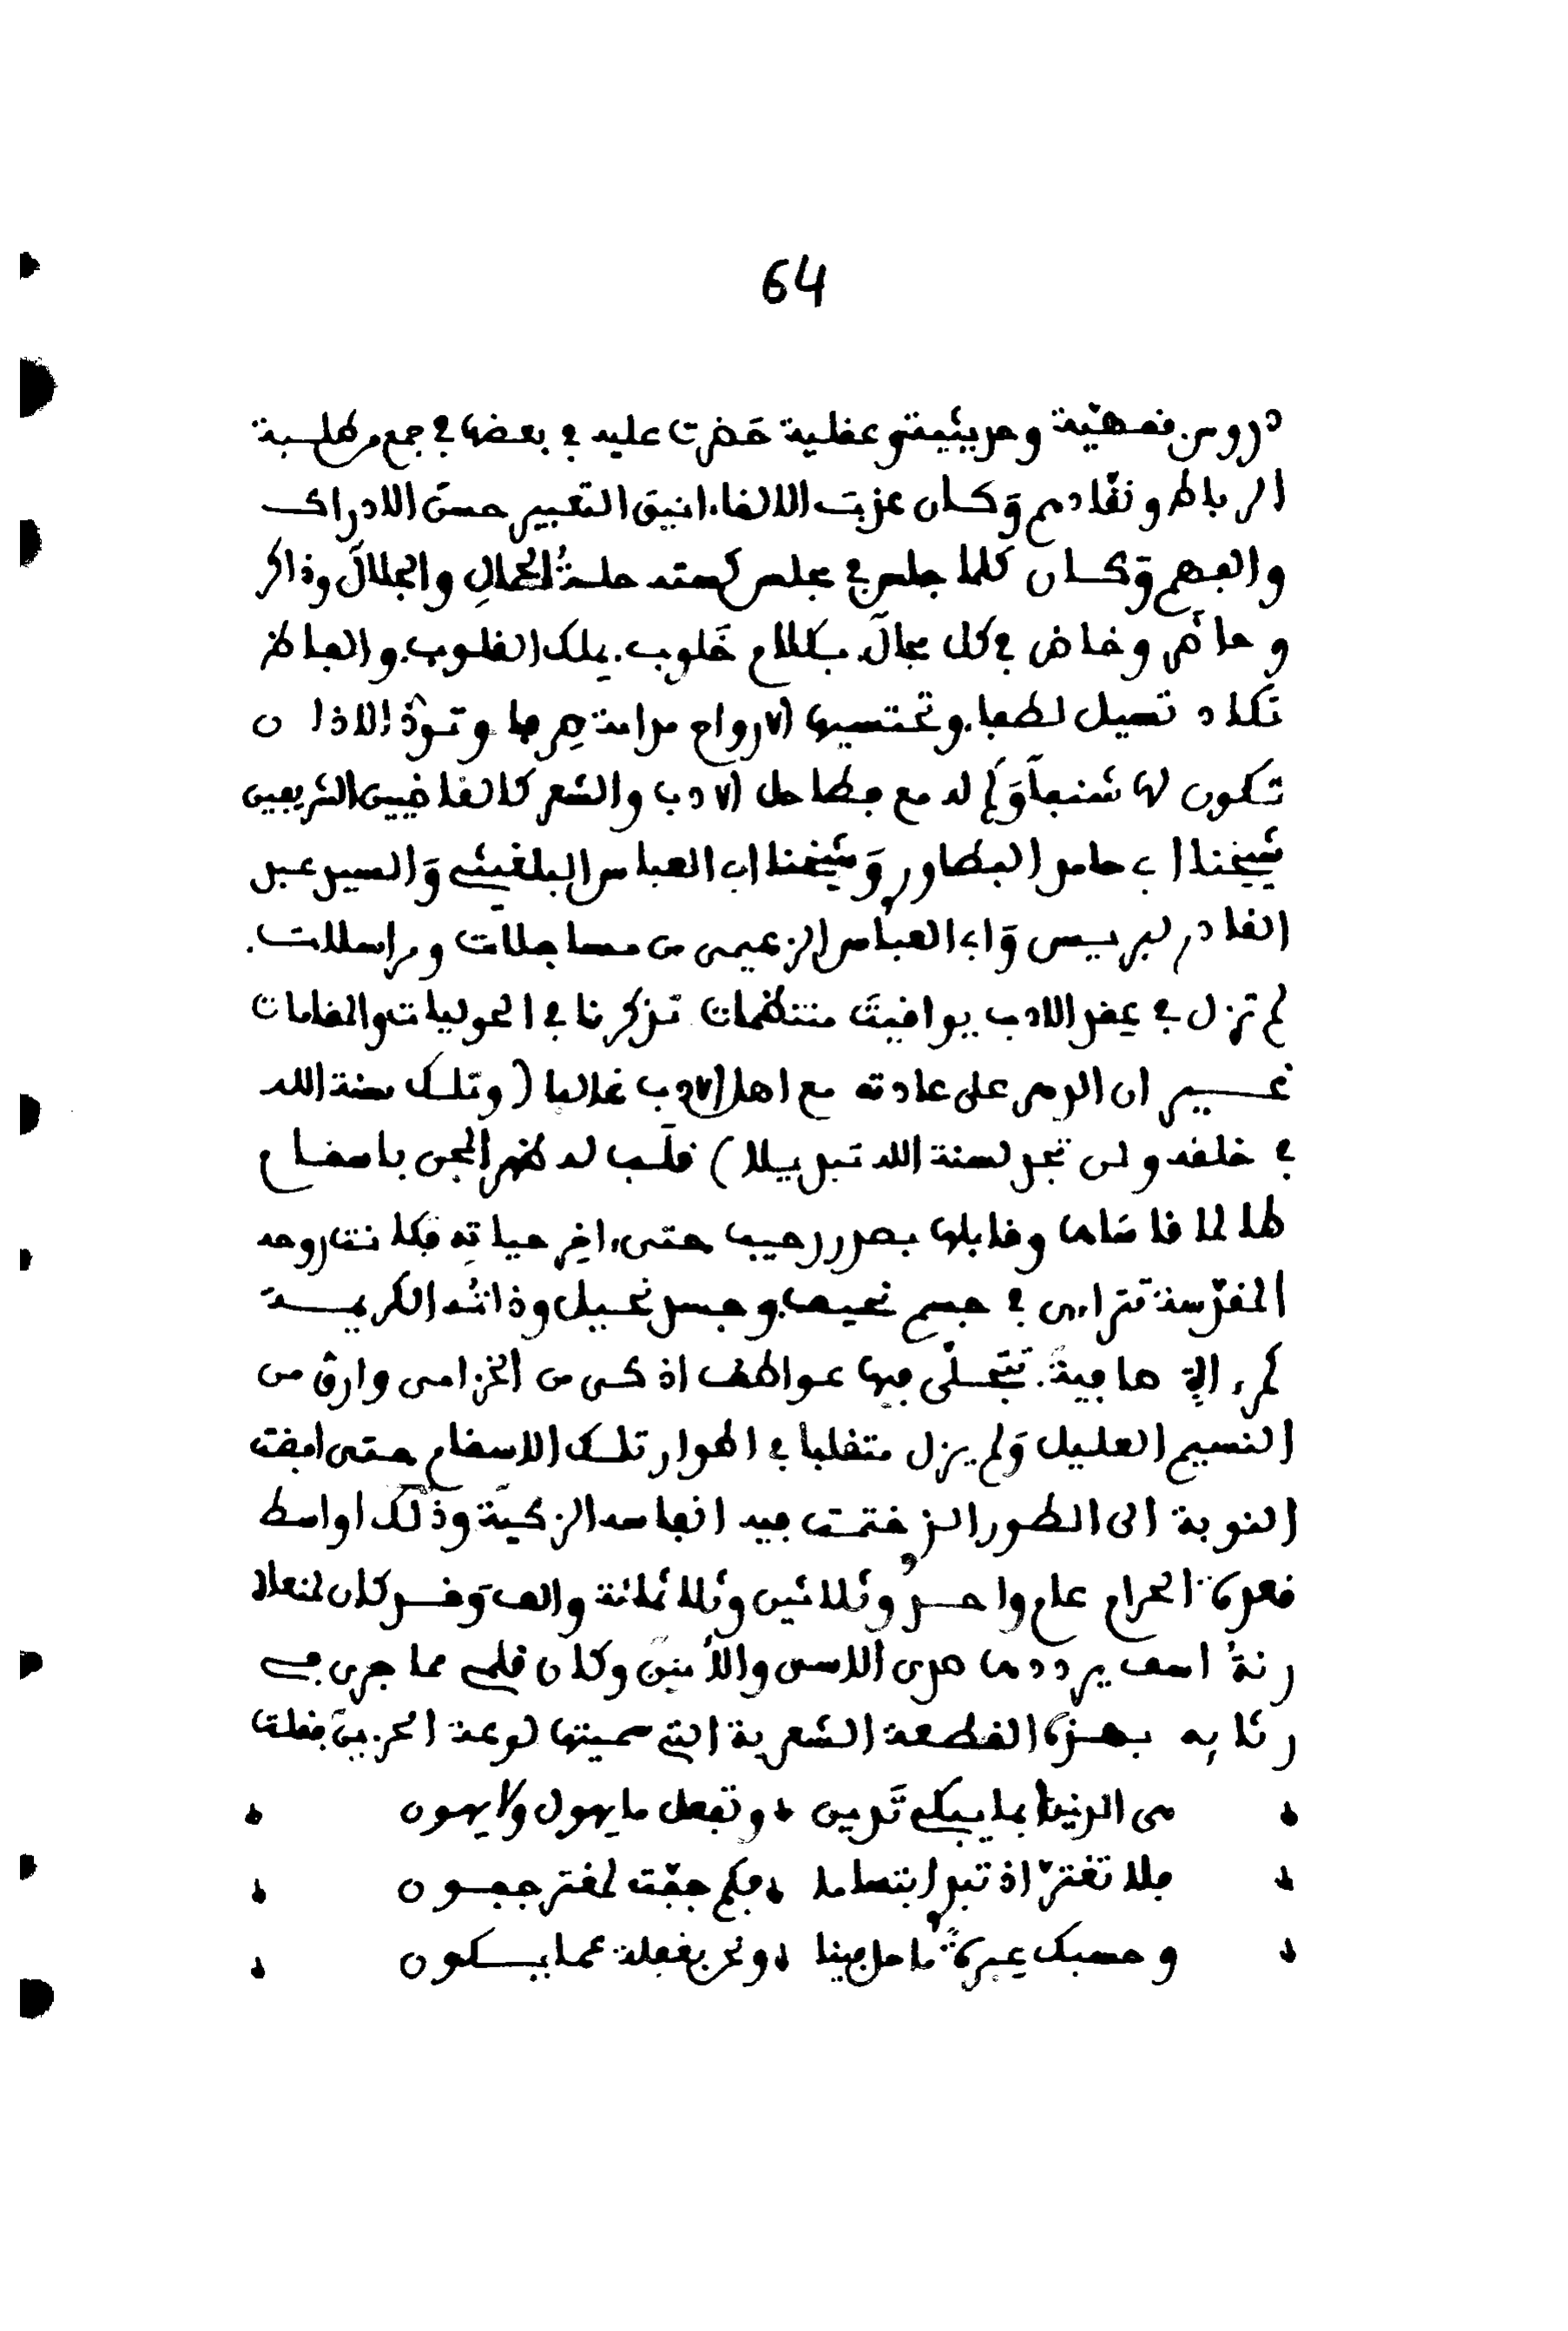 64
دروس فقهية وحديثية وعقلية حضرت عليه في بعضها في جمع من طلبة
الرباط ونقادهم وكان عذب الالقاء انيق التعبير حسن الادراك
والفهم وكان كلما جلس في مجلس كسته حلة الجمال والجلال وذاكر
وحاضر وخاض في كل مجال بكلام خلوب يملك القلوب والفاظ
تكاد تسيل لطفا وتحتسيها الارواح مدامة صرفا وتود الاذان
تكون لها شنفا وكم له مع فطاحل الادب والشعر كالقاضيين الشريفين
شيخنا ابي حامد البطاوري وشيخنا ابي العباس البلغيثي والسيد عبد
القادر لبريس وابي العباس الزعيمي من مساجلات ومراسلات.
لم تزل في عقد الادب يواقيت منتظمات تذكرنا في الحوليات والمقامات
غير ان الدهر على عادته مع اهل الادب غالبا (وتلك سنة الله
في خلقه ولن تجد لسنة الله تبديلا) قلب له ظهر المجن باسقام
طالما قاساها وقابلها بصدر رحيب حتى ءاخر حياته فكانت روحه
المقدسة تتراءى في جسم نحيف وجسد نحيل وذاته الكريمة
كمرءاة صافية تتجلى فيها عواطف اذكى من الخزامى وارق من
النسيم العليل ولم يزل متقلبا في اطوار تلك الاسقام حتى افضت
النوبة الى الطور الذي ختمت فيه انفاسه الزكية وذلك اواسط
قعدة الحرام عام واحد وثلاثين وثلاثمائة والف وقد كان لنعاه
رنة اسف يرددها صدى الاسى والانين وكان قلمي مما جرى في
رثائه بهذه القطعة الشعرية التي سميتها لوعة الحزين فقلت
هي الدنيا بما يبكي تدين وتفعل ما يهول ولا يهون
فلا تغتر اذ تبدي ابتساما فكم جفت لمغتر جفون
وحسبك عبرة ما حل فينا ونحن بغفلة عما يكون